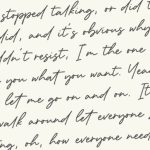 stopped talking, or did t
did, and it's obvious why
dn't resist, I'm the one
you what you want. Yea
let me go on and on. It
walk around let everyone
ng, oh, how everyone need